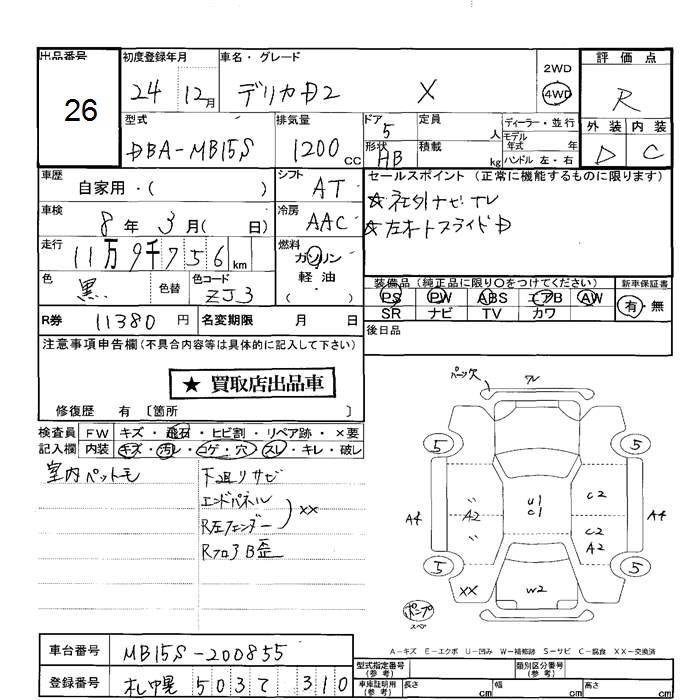 出品番号
26
初度登録年月
24 12月
車名・グレード
デリカD2 X
2WD
4WD
評価点
R
外装 内装
D C
型式
DBA-MB15S
排気量
1200cc
ドア
5
形状
HB
定員 人
積載 kg
ディーラー・並行
モデル年式 年
ハンドル 左・右
車歴
自家用・( )
シフト
AT
車検
8年 3月( 日)
冷房
AAC
走行
11万9千756km
燃料
ガソリン
軽油
( )
色
黒
色替
色コード
ZJ3
セールスポイント (正常に機能するものに限ります)
☆社外ナビTV
☆左オートスライドD
装備品(純正品に限り○をつけてください)
PS PW ABS エアB AW
SR ナビ TV カワ
新車保証書
有・無
R券 11380円
名変期限 月 日
後日品
注意事項申告欄(不具合内容等は具体的に記入して下さい)
★ 買取店出品車
修復歴 有 〔箇所 〕
検査員記入欄
FW キズ・飛石・ヒビ割・リペア跡・×要
内装 キズ・汚レ・コゲ・穴・スレ・キレ・破レ
室内ペット毛
下廻りサビ
エンドパネル
R左フェンダー
XX
Rフロア歪
パーツ欠
フル
5 5
A4
A2
U1
C1
C2
C2
A2
A4
5 5
XX
W2
ポンプ
スペア
A-キズ E-エクボ U-凹み W-補修跡 S-サビ C-腐食 XX-交換済
車台番号 MB15S-200855
登録番号 札幌 503 て 310
型式指定番号(参考)
類別区分番号(参考)
車庫証明用(参考)
長さ cm
幅 cm
高さ cm